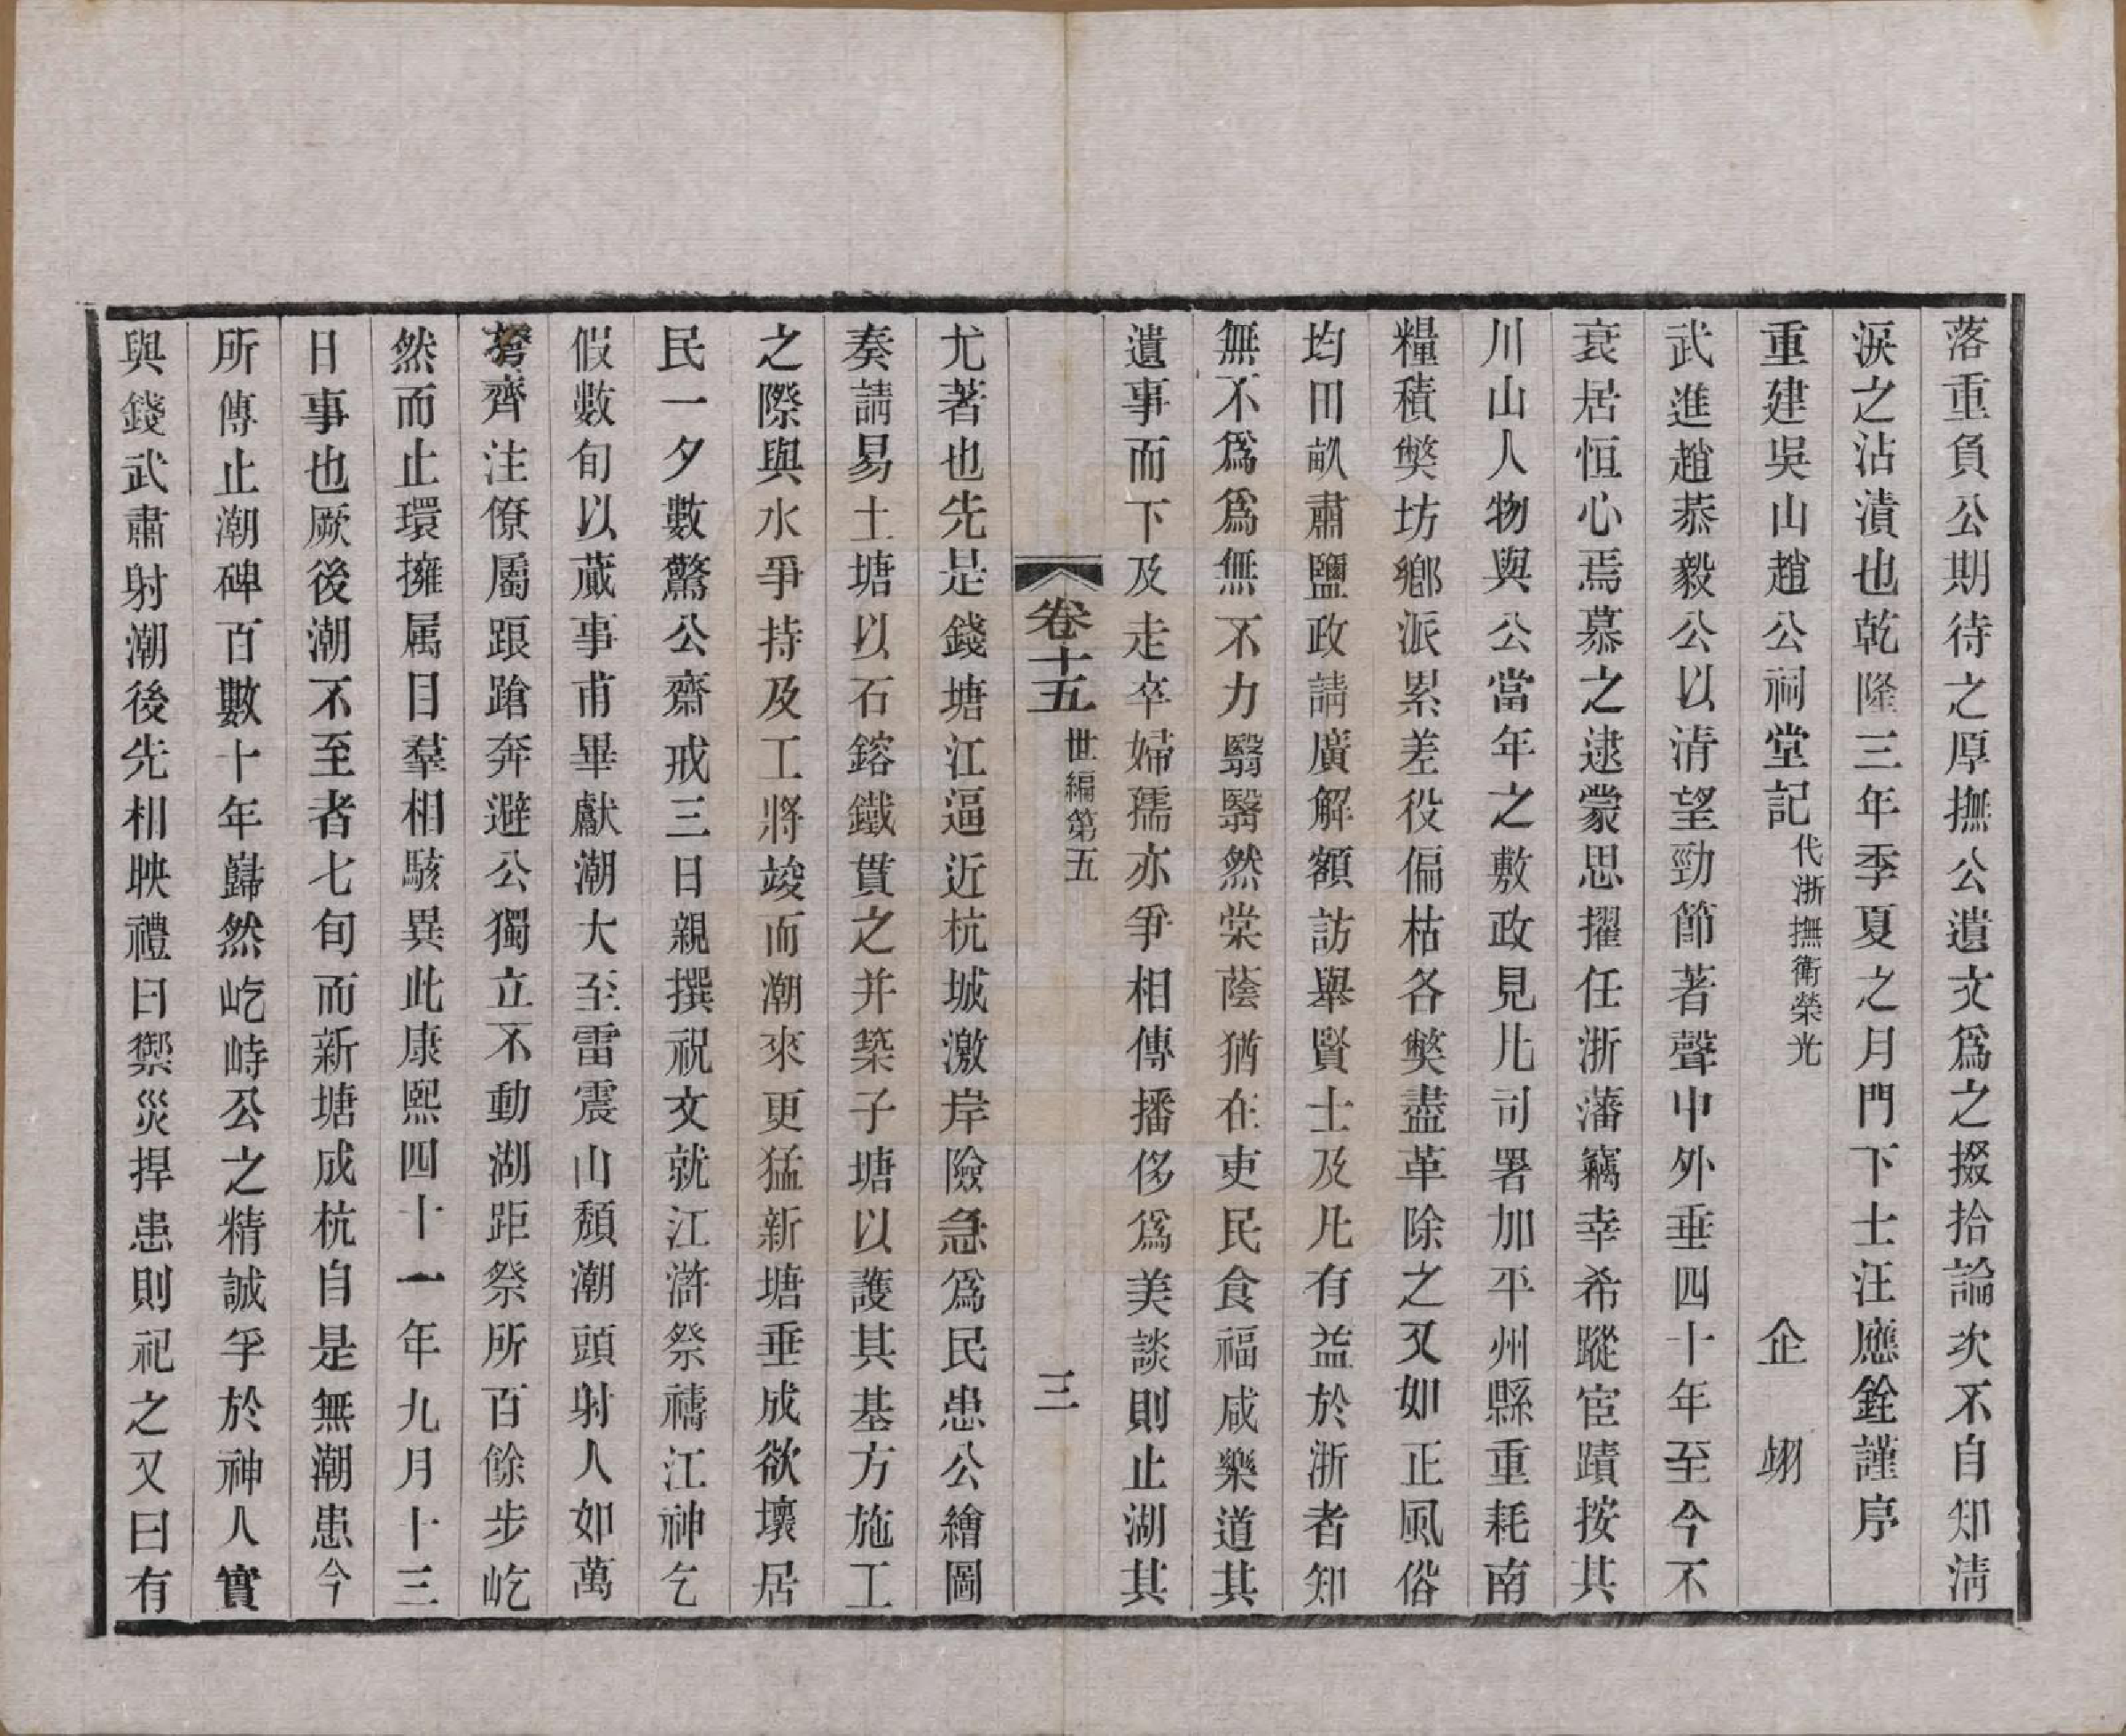 落重負公期待之厚撫公遺文爲之掇拾論次不自知淸
淚之沾漬也乾隆三年季夏之月門下士汪應銓謹序
重建吳山趙公祠堂記代浙撫衛榮光 企翊
武進趙恭毅公以淸望勁節著聲中外垂四十年至今不
衰居恒心焉慕之逮蒙思擢任浙藩竊幸希蹤宦蹟按其
川山人物與公當年之敷政見凡司署加平州縣重耗南
糧積獘坊鄉派累差役偏枯各獘盡革除之又如正風俗
均田畝肅鹽政請廣解額訪舉賢士及凡有益於浙者知
無不爲爲無不力翳翳然棠蔭猶在吏民食福咸樂道其
遺事而下及走卒婦孺亦爭相傳播侈爲美談則止湖其
卷十五 世編第五 三
尤著也先是錢塘江逼近杭城激岸險急爲民患公繪圖
奏請易土塘以石鎔鐵貫之并築子塘以護其基方施工
之際與水爭持及工將竣而潮來更猛新塘垂成欲壞居
民一夕數驚公齋戒三日親撰祝文就江滸祭禱江神乞
假數旬以蕆事甫畢獻潮大至雷震山頹潮頭射人如萬
弩齊注僚屬踉蹌奔避公獨立不動湖距祭所百餘步屹
然而止環擁属目羣相駭異此康熙四十一年九月十三
日事也厥後潮不至者七旬而新塘成杭自是無潮患今
所傳止潮碑百數十年巋然屹峙公之精誠孚於神人實
與錢武肅射潮後先相映禮曰禦災捍患則祀之又曰有